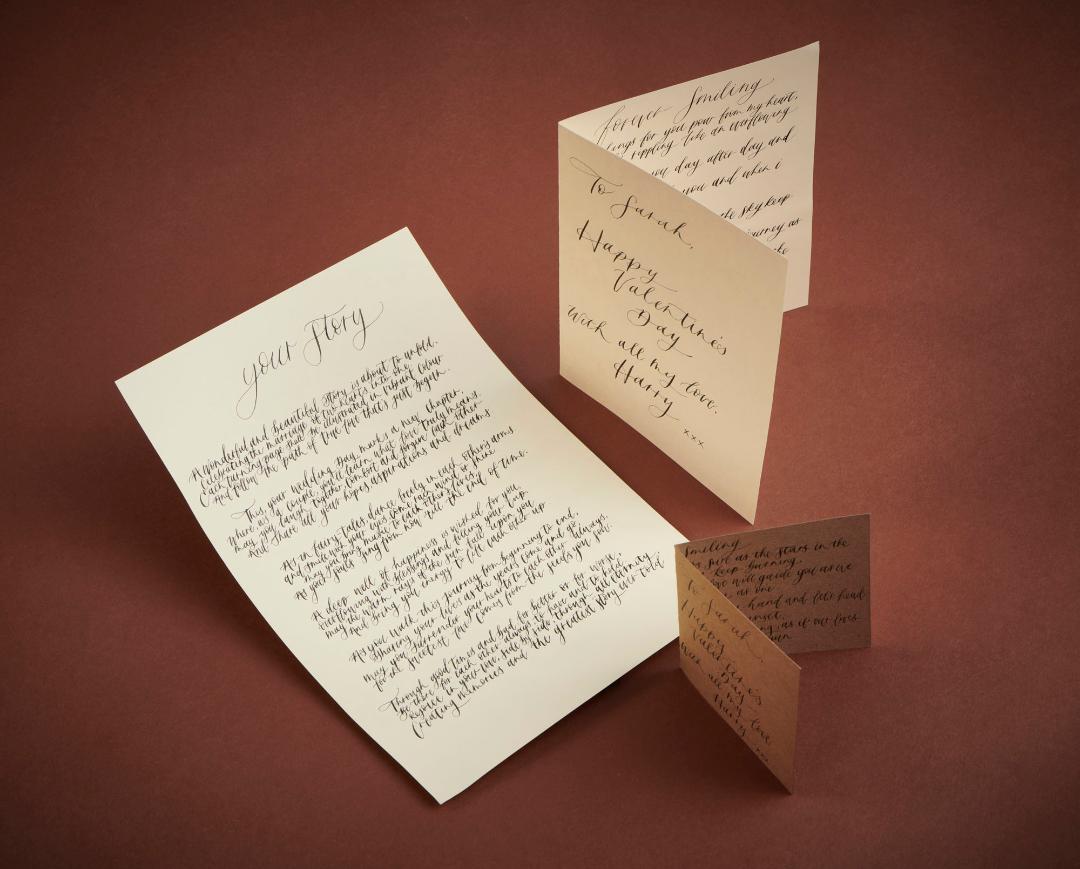 your story
A wonderful and beautiful story is about to unfold.
Celebrating the marriage of two hearts into one
Each turning page shall be illustrated in vibrant colour
And follow the path of true love that's just begun.
This, your wedding day, marks a new chapter.
Where as a couple, you'll learn what love truly means.
may you laugh together, comfort and forgive each other
And share all your hopes, aspirations and dreams
As in fairy tales dance freely in each other's arms.
and smile with your eyes come rain, wind or shine
may you be soulmates to each other
As your souls sing from now till the end of time.
A deep well of happiness is wished for you
Overflowing with blessings and filling your cup
may the warm rays of the sun fall upon you
And bring you energy to lift each other up
As you walk this journey from beginning to end,
Sharing your lives as the years come and go,
may you surrender your hearts to each other always,
for the sweetest love comes from the seeds you sow.
Through good times and bad, for better or for worse,
Be there for each other always to have and to hold,
Rejoice in your love, side by side, through all eternity
Creating memories and the greatest story ever told
forever smiling
for you pour from my heart,
rippling like an overflowing
you day after day and
you and when i
the sky keep
journey as
To Sarah,
Happy
Valentine's
Day
With all my love.
Harry
xxx
smiling
as sure as the stars in the
keep burning
love will guide you as we
as one
hand and let's head
sunset,
as if our lives
To Sarah,
Happy
Valentine's
Day
With all my love
Harry
xxx